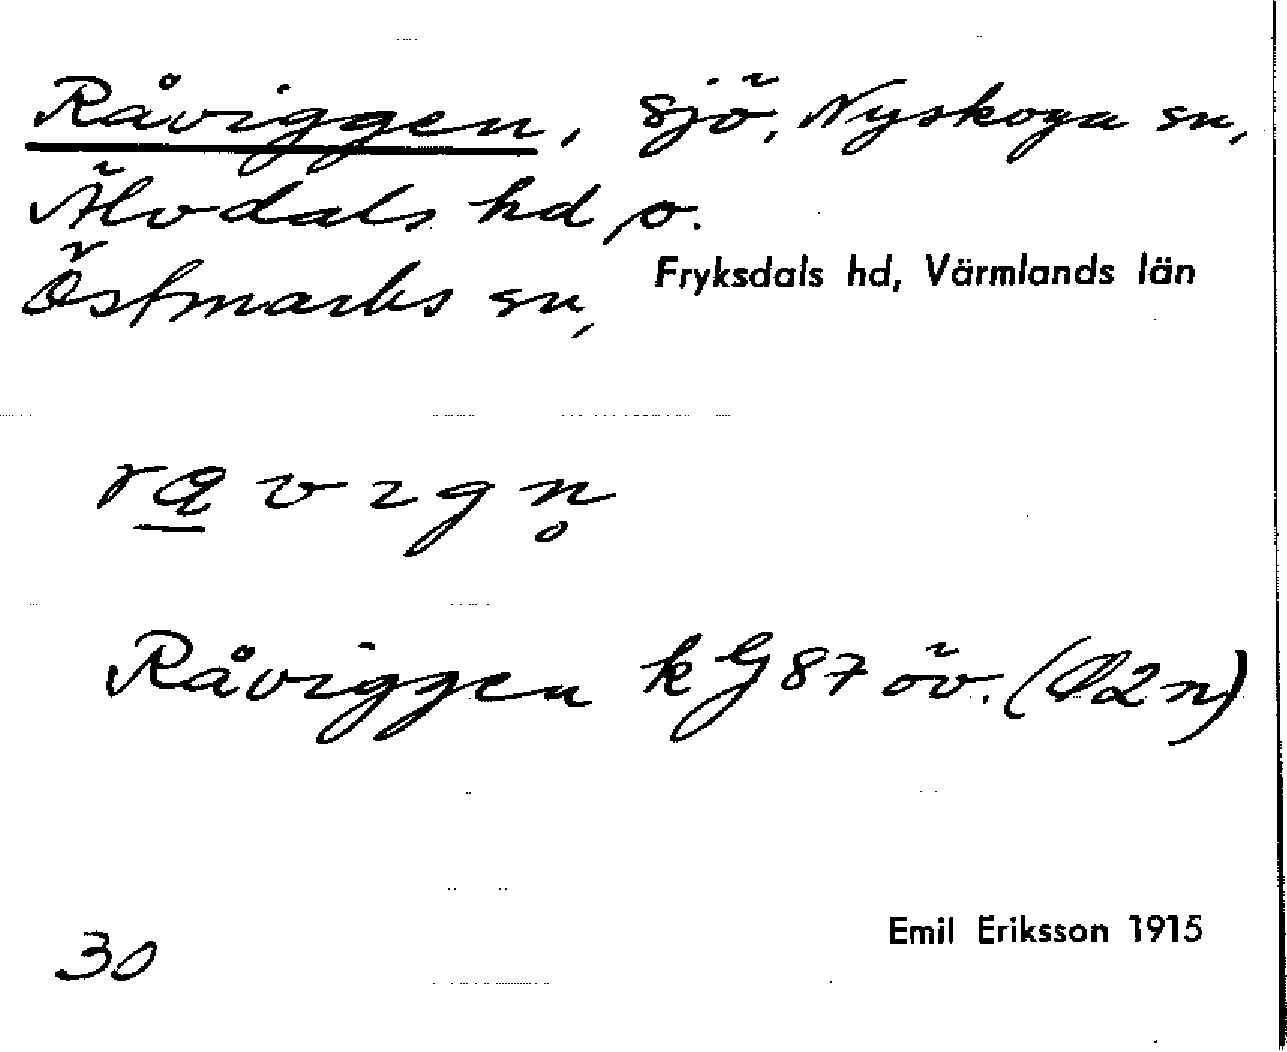 Råviggen, sjö, Nyskoga sn,
Älvdals hd o.
Östmarks sn, Fryksdals hd, Värmlands län
Råviggen kG 87 öv. (Ø2n)
30 Emil Eriksson 1915